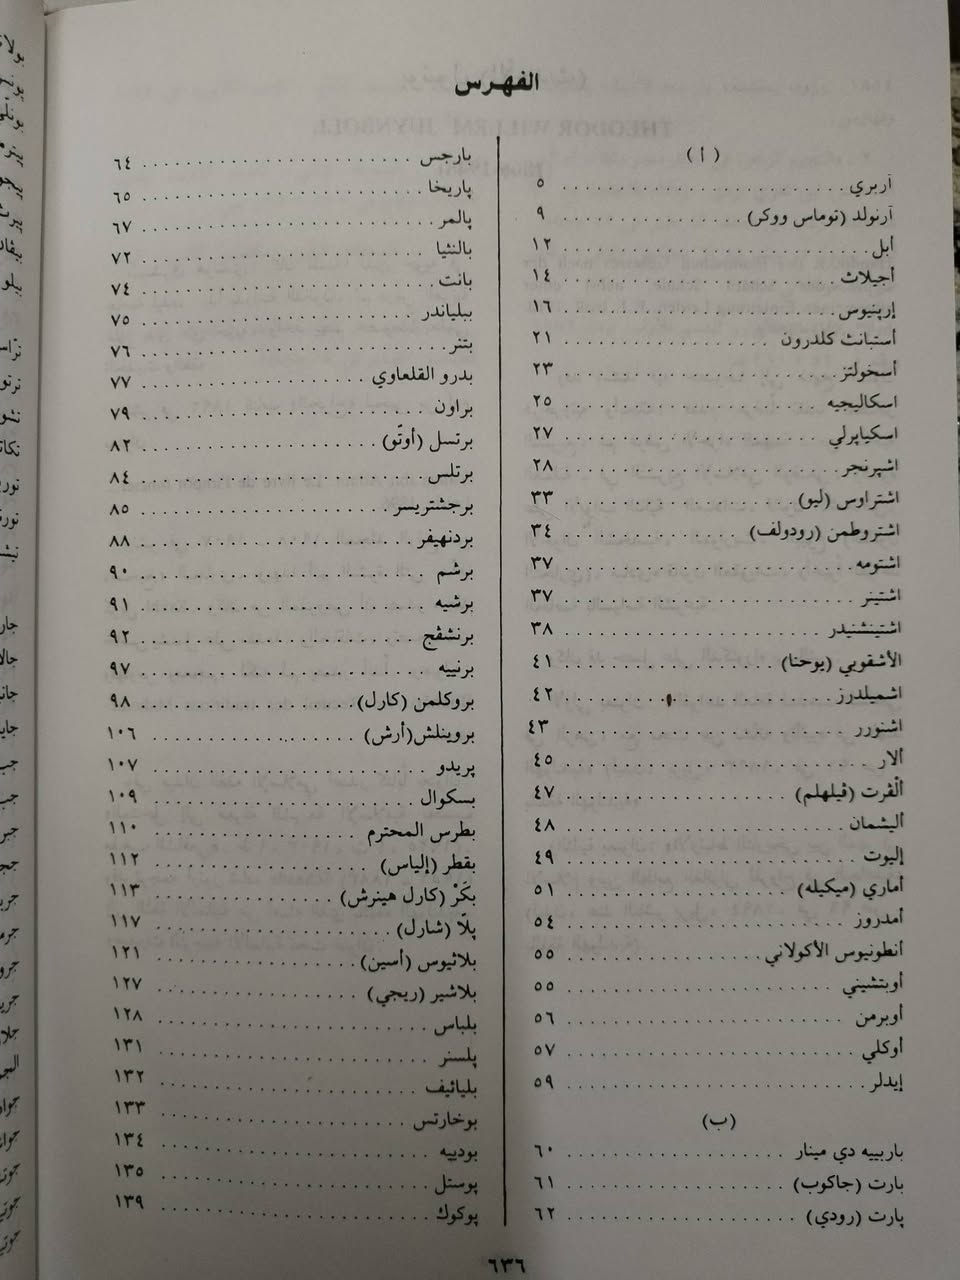 الفهرس
( أ )
آربري . . . . . . . . . . . . . . . . . . . . . . . . ٥
آرنولد (توماس ووكر) . . . . . . . . . . . . . . ٩
أبل . . . . . . . . . . . . . . . . . . . . . . . . ١٢
أجيلاث . . . . . . . . . . . . . . . . . . . . . . ١٤
إرپنيوس . . . . . . . . . . . . . . . . . . . . . ١٦
أستبانث كلدرون . . . . . . . . . . . . . . . . ٢١
أسخولتز . . . . . . . . . . . . . . . . . . . . . ٢٣
اسكاليجيه . . . . . . . . . . . . . . . . . . . . ٢٥
اسكياپرلي . . . . . . . . . . . . . . . . . . . . ٢٧
اشپرنجر . . . . . . . . . . . . . . . . . . . . . ٢٨
اشتراوس (ليو) . . . . . . . . . . . . . . . . . ٣٣
اشتروطمن (رودولف) . . . . . . . . . . . . . ٣٤
اشتومه . . . . . . . . . . . . . . . . . . . . . . ٣٧
اشتينر . . . . . . . . . . . . . . . . . . . . . . ٣٧
اشتينشنيدر . . . . . . . . . . . . . . . . . . . ٣٨
الأشقوبي (يوحنا) . . . . . . . . . . . . . . . ٤١
اشميلدرز . . . . . . . . . . . . . . . . . . . . ٤٢
اشنورر . . . . . . . . . . . . . . . . . . . . . . ٤٣
ألار . . . . . . . . . . . . . . . . . . . . . . . . ٤٥
ألْڤرت (ڤيلهلم) . . . . . . . . . . . . . . . . ٤٧
أليشمان . . . . . . . . . . . . . . . . . . . . . ٤٨
إليوت . . . . . . . . . . . . . . . . . . . . . . ٤٩
أماري (ميكيله) . . . . . . . . . . . . . . . . ٥١
أمدروز . . . . . . . . . . . . . . . . . . . . . . ٥٤
أنطونيوس الأكولاني . . . . . . . . . . . . . ٥٥
أوبتشيني . . . . . . . . . . . . . . . . . . . . ٥٥
أوبرمن . . . . . . . . . . . . . . . . . . . . . . ٥٦
أوكلي . . . . . . . . . . . . . . . . . . . . . . ٥٧
إيدلر . . . . . . . . . . . . . . . . . . . . . . . ٥٩
(ب)
باربييه دي مينار . . . . . . . . . . . . . . . . ٦٠
بارت (جاكوب) . . . . . . . . . . . . . . . . ٦١
پارت (رودي) . . . . . . . . . . . . . . . . . ٦٢
بارجس . . . . . . . . . . . . . . . . . . . . . ٦٤
پاريخا . . . . . . . . . . . . . . . . . . . . . . ٦٥
پالمر . . . . . . . . . . . . . . . . . . . . . . . ٦٧
بالنثيا . . . . . . . . . . . . . . . . . . . . . . ٧٢
بانت . . . . . . . . . . . . . . . . . . . . . . . ٧٤
ببلياندر . . . . . . . . . . . . . . . . . . . . . ٧٥
بتنر . . . . . . . . . . . . . . . . . . . . . . . ٧٦
بدرو القلعاوي . . . . . . . . . . . . . . . . . ٧٧
براون . . . . . . . . . . . . . . . . . . . . . . ٧٩
برتسل (أوتّو) . . . . . . . . . . . . . . . . . ٨٢
برتلس . . . . . . . . . . . . . . . . . . . . . . ٨٤
برجشتريسر . . . . . . . . . . . . . . . . . . ٨٥
بردنهيفر . . . . . . . . . . . . . . . . . . . . ٨٨
برشم . . . . . . . . . . . . . . . . . . . . . . ٩٠
برشيه . . . . . . . . . . . . . . . . . . . . . . ٩١
برنشڤج . . . . . . . . . . . . . . . . . . . . . ٩٢
برنييه . . . . . . . . . . . . . . . . . . . . . . ٩٧
بروكلمن (كارل) . . . . . . . . . . . . . . . ٩٨
بروينلش(أرش) . . . . . . . . . . . . . . . ١٠٦
پريدو . . . . . . . . . . . . . . . . . . . . . . ١٠٧
بسكوال . . . . . . . . . . . . . . . . . . . . ١٠٩
بطرس المحترم . . . . . . . . . . . . . . . . ١١٠
بقطر (إلياس) . . . . . . . . . . . . . . . . . ١١٢
بكَرْ (كارل هينرش) . . . . . . . . . . . . . ١١٣
پلّا (شارل) . . . . . . . . . . . . . . . . . . ١١٧
بلاثيوس (أسين) . . . . . . . . . . . . . . . ١٢١
بلاشير (ريجي) . . . . . . . . . . . . . . . . ١٢٧
بلباس . . . . . . . . . . . . . . . . . . . . . ١٢٨
پلسنر . . . . . . . . . . . . . . . . . . . . . . ١٣١
بليائيف . . . . . . . . . . . . . . . . . . . . . ١٣٢
بوخارتس . . . . . . . . . . . . . . . . . . . ١٣٣
بودييه . . . . . . . . . . . . . . . . . . . . . . ١٣٤
پوستل . . . . . . . . . . . . . . . . . . . . . ١٣٥
پوكوك . . . . . . . . . . . . . . . . . . . . . ١٣٩
٦٣٦